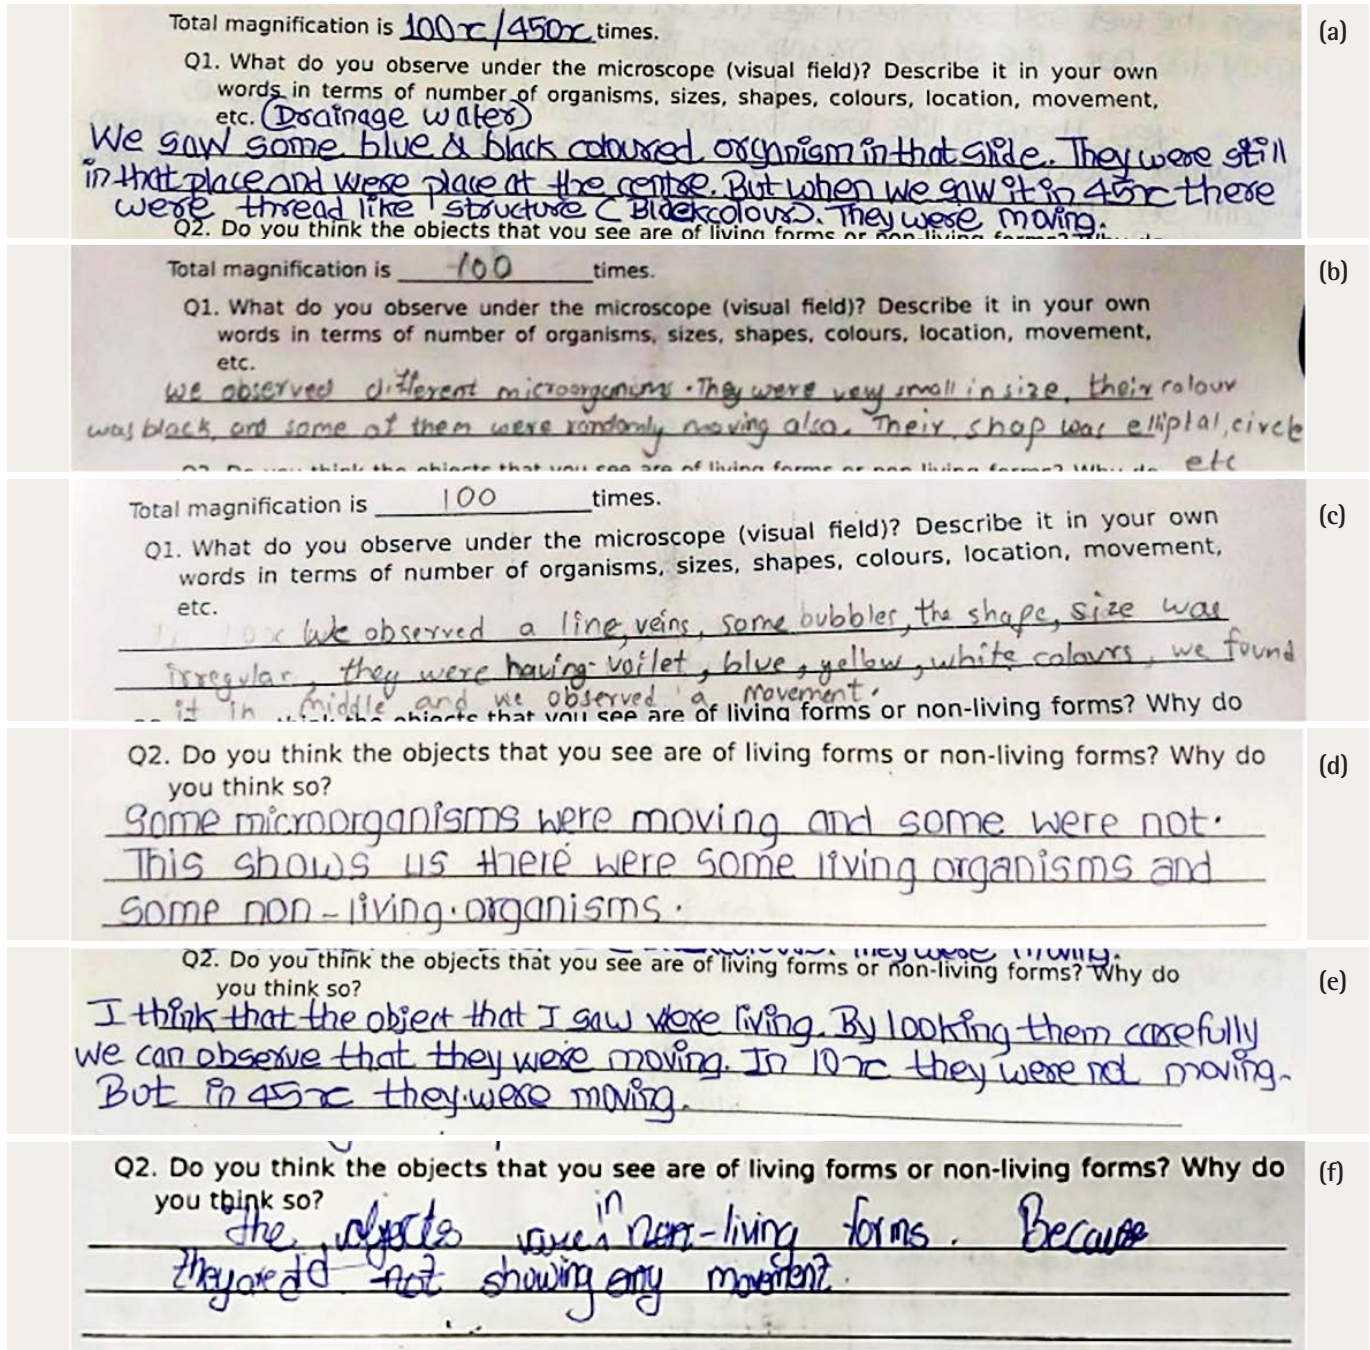 Total magnification is 100x/450x times.
(a)
Q1. What do you observe under the microscope (visual field)? Describe it in your own
words in terms of number of organisms, sizes, shapes, colours, location, movement,
etc. (Drainage water)
We saw some blue & black coloured organism in that slide. They were still
in that place and were place at the centre. But when we saw it in 45x there
were thread like structure (Blackcolour). They were moving.
Q2. Do you think the objects that you see are of living forms or non-living forms? Why do
Total magnification is 100 times.
(b)
Q1. What do you observe under the microscope (visual field)? Describe it in your own
words in terms of number of organisms, sizes, shapes, colours, location, movement,
etc.
We observed different microorganims. They were very small in size, their colour
was black, and some of them were randomly moving also. Their shap was elliptal, circle
etc
Q2. Do you think the objects that you see are of living forms or non living forms? Why do
Total magnification is 100 times.
(c)
Q1. What do you observe under the microscope (visual field)? Describe it in your own
words in terms of number of organisms, sizes, shapes, colours, location, movement,
etc.
We observed a line, veins, some bubbles, the shape, size was
irregular, they were having voilet, blue, yellow, white colours, we found
it in middle and we observed a movement.
think the objects that you see are of living forms or non-living forms? Why do
Q2. Do you think the objects that you see are of living forms or non-living forms? Why do
(d)
you think so?
Some microorganisms were moving and some were not.
This shows us there were some living organisms and
some non-living organisms.
They were moving.
Q2. Do you think the objects that you see are of living forms or non-living forms? Why do
(e)
you think so?
I think that the object that I saw were living. By looking them carefully
we can observe that they were moving. In 10x they were not moving.
But in 45x they were moving.
Q2. Do you think the objects that you see are of living forms or non-living forms? Why do
(f)
you think so?
The objects were in non-living forms. Because
they not showing any movement.